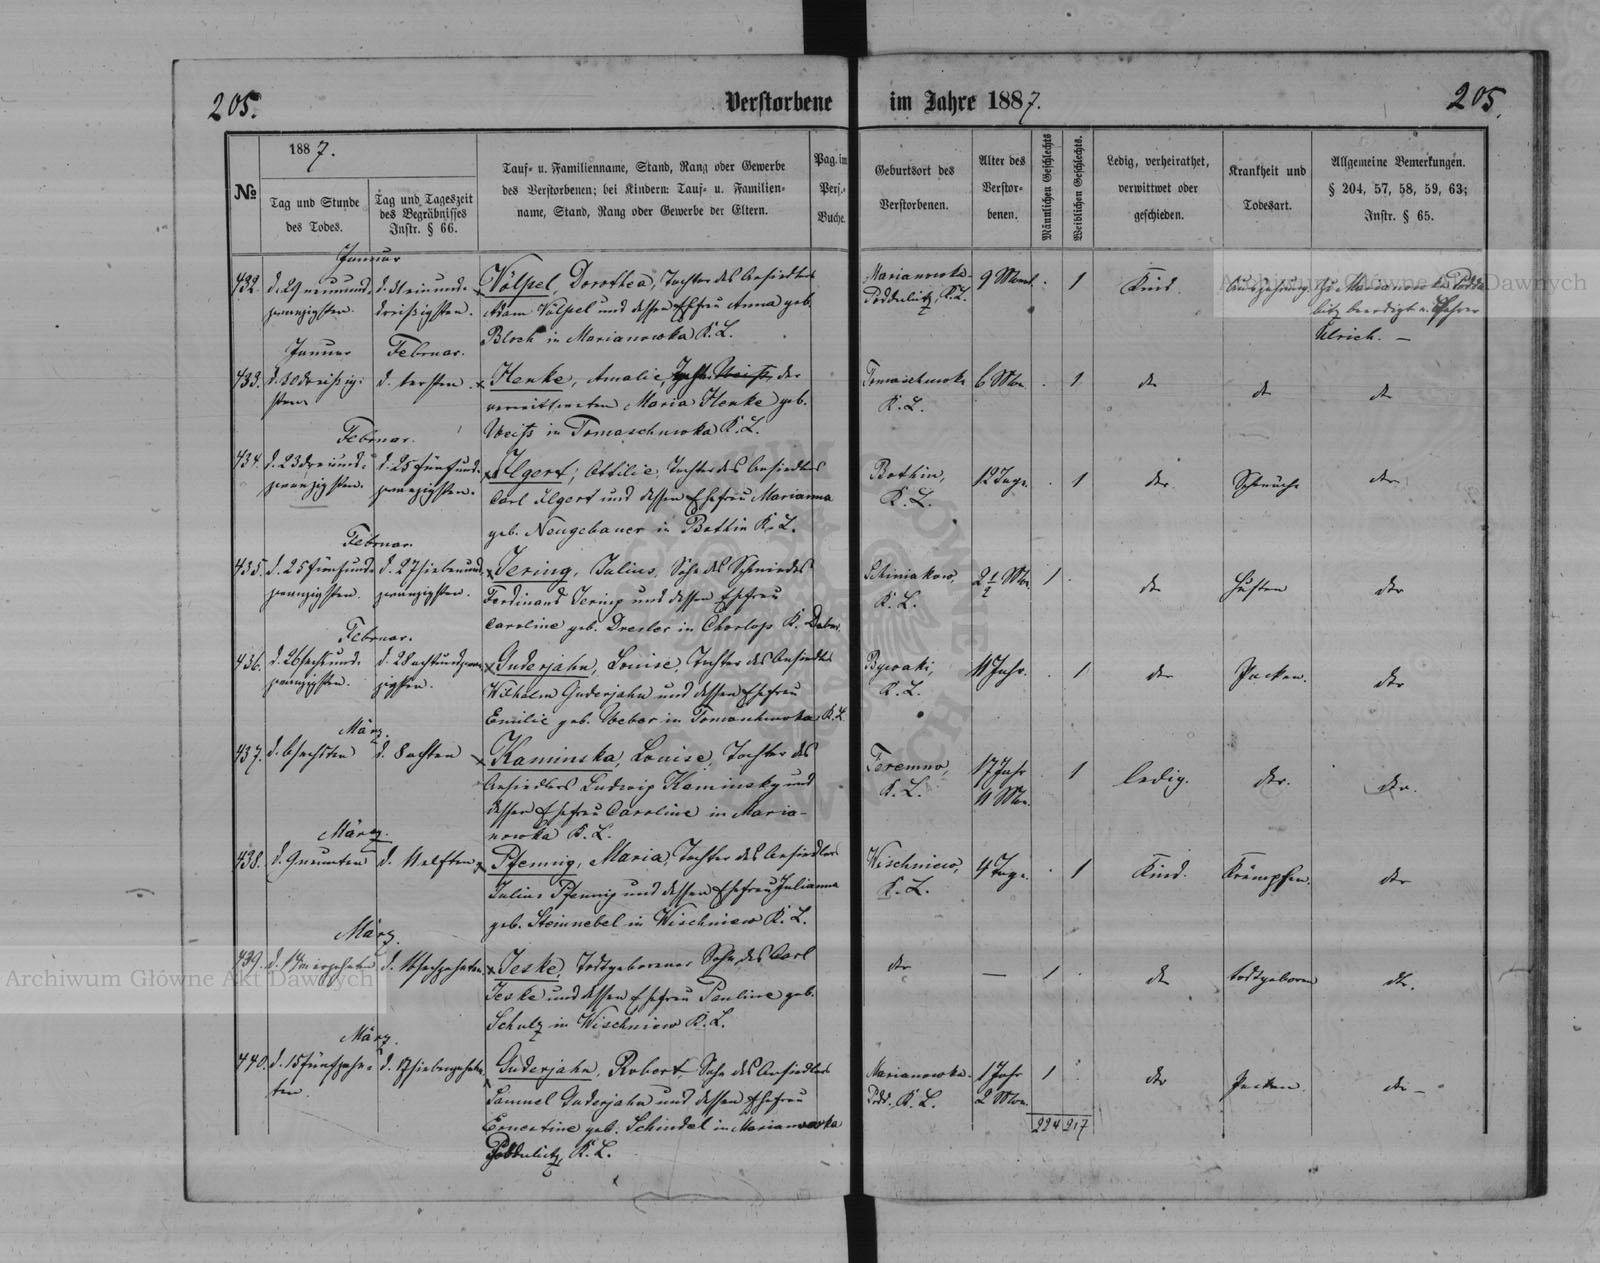 205.
Verstorbene im Jahre 1887.
205.
№
1887.
Tag und Stunde
des Todes.
Tag und Tageszeit
des Begräbnisses
Instr. § 66.
Tauf- u. Familienname, Stand, Rang oder Gewerbe
des Verstorbenen; bei Kindern: Tauf- u. Familien-
name, Stand, Rang oder Gewerbe der Eltern.
Pag. im
Pers.-
Buche.
Geburtsort des
Verstorbenen.
Alter des
Verstor-
benen.
Männlichen Geschlechts
Weiblichen Geschlechts.
Ledig, verheirathet,
verwittwet oder
geschieden.
Krankheit und
Todesart.
Allgemeine Bemerkungen.
§ 204, 57, 58, 59, 63;
Instr. § 65.
Januar
432. d. 29 neunund-
zwanzigsten.
d. 31 einund-
dreißigsten.
Völpel, Dorothea, Tochter des Ansiedlers
Adam Völpel und dessen Ehefrau Anna geb.
Bloch in Marianowka K. L.
Marianowka-
Poddulitz, K. L.
9 Mon. . 1 Kind. Auszehrung.
beerdigt v. Pfarrer
Ulrich. —
Januar Februar.
433. d. 30 dreißig-
sten
d. ersten.
Henke, Amalie, Tochter der
verwittweten Maria Henke geb.
Weiß in Tomaschuwka K. L.
Tomaschuwka
K. L.
6 Mon. . 1 do do do
Februar.
434. d. 23 dreiund-
zwanzigsten.
d. 25 fünfund-
zwanzigsten.
Ilgert, Ottilie, Tochter des Ansiedlers
Carl Ilgert und dessen Ehefrau Marianna
geb. Neugebauer in Bottin K. L.
Bottin,
K. L.
12 Tage. . 1 do. do
Februar.
435. d. 25 fünfund-
zwanzigsten.
d. 27 siebenund-
zwanzigsten.
Jering, Julius, Sohn des Schmiedes
Ferdinand Jering und dessen Ehefrau
Caroline geb. Dresler in
K. L.
2 1/2 Mon. 1 . do Husten do
Februar.
436. d. 26 sechsund-
zwanzigsten.
d. 28 achtundzwan-
zigsten.
Guderjahn, Louise, Tochter des Ansiedlers
Wilhelm Guderjahn und dessen Ehefrau
Emilie geb. Weber in Tomaschuwka K. L.
K. L.
11 Jahr. . 1 do Pocken. do
März.
437. d. 6 sechsten d. 8 achten
Kaminska, Louise, Tochter des
Ansiedlers Ludwig Kaminsky und
dessen Ehefrau Caroline in Maria-
nowka K. L.
Teremno,
K. L.
17 Jahr
11 Mon. . 1 ledig. do. do.
März.
438. d. 9 neunten d. 11 elften
Pfennig, Maria, Tochter des Ansiedlers
Julius Pfennig und dessen Ehefrau Julianna
geb. Steinnebel in Wischniew K. L.
Wischniew,
K. L.
4 Tage. . 1 Kind. Krämpfen. do
März.
439. d. 14 vierzehnten d. 16 sechzehnten.
Jeske, Todtgeborener Sohn des Carl
Jeske und dessen Ehefrau Pauline geb.
Schulz in Wischniew K. L.
do — 1 . do todtgeboren do.
März.
440. d. 15 fünfzehn-
ten.
d. 17 siebenzehnten
Guderjahn, Robert, Sohn des Ansiedlers
Samuel Guderjahn und dessen Ehefrau
Ernestine geb. Schindel in Marianowka
Poddulitz, K. L.
Marianowka-
Podd. K. L.
1 Jahr
2 Mon. 1 . do Pocken. do —
224 217
Archiwum Główne Akt Dawnych
Archiwum Główne Akt Dawnych